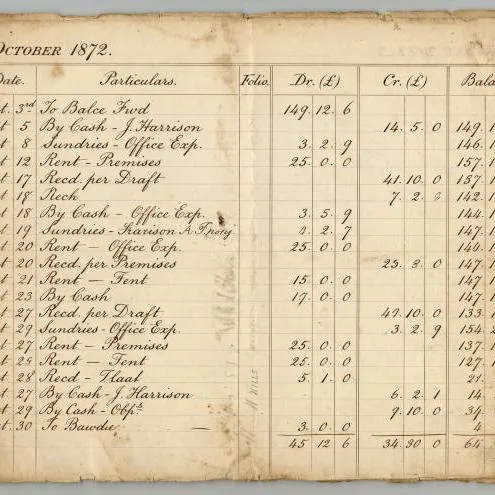 October 1872.
Date. Particulars. Folio. Dr. (£) Cr. (£) Bala
t. 3rd To Balce Fwd 149. 12. 6
t 5 By Cash - J. Harrison 14. 5. 0 149. 1
t 8 Sundries - Office Exp. 3. 2. 9 146. 1
t 12 Rent - Premises 25. 0. 0 157.
t 17 Recd. per Draft 41. 10. 0 187. 1
t 18 Rech 7. 2. 142. 1
t 18 By Cash - Office Exp. 3. 5. 9 144.
t 19 Sundries - 2. 7 147. 1
t 20 Rent - Office Exp. 25. 0. 0 144.
t 20 Recd. per Premises 23. 3. 0 147. 1
t 21 Rent - Fent 15. 0. 0 147. 1
t 23 By Cash 17. 0. 0 147.
t 27 Recd. per Draft 49. 10. 0 133. 1
t 29 Sundries - Office Exp. 3. 2. 9 154. 2
t 27 Rent - Premises 25. 0. 0 137. 1
t 28 Rent — Fent 25. 0. 0 127. 1
t 28 Recd - Tlaat 5. 1. 0 21.
t 27 By Cash - J. Harrison 6. 2. 1 14.
t 29 By Cash - 9. 10. 0 34.
t. 30 To Bawdie — 3. 0. 0 4
45 12 6 34. 30 0 64.